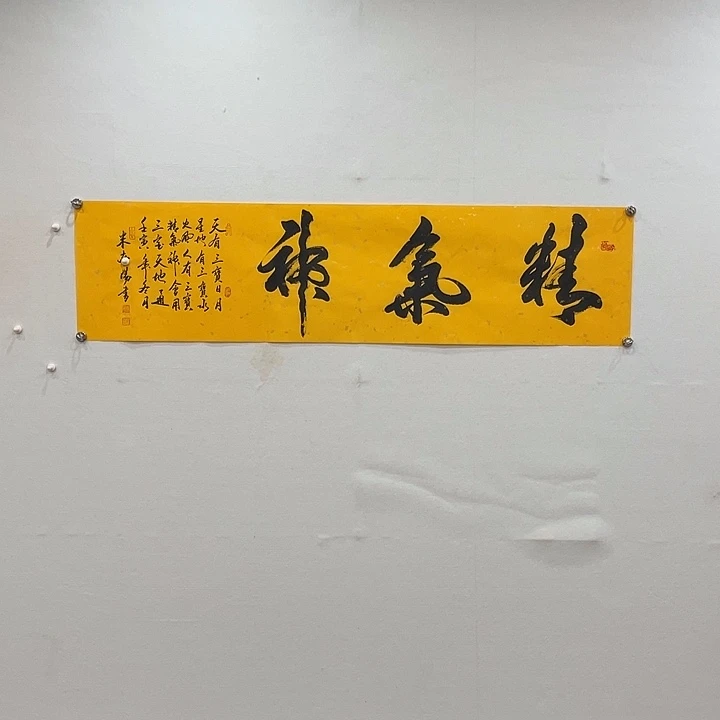 精氣神
天有三寶日月
星地有三寶水
火風人有三寶
精氣神會用
三寶天地通
壬寅年冬月